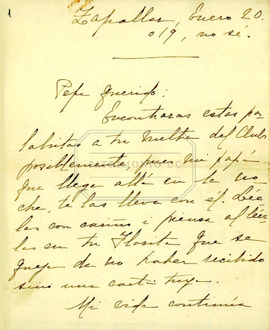 1
Zapallar, Enero 20.
019, no sé.
Pepe querido:
Encontrarás estas pa
labritas a tu vuelta del Club
posiblemente, pues mi papá
que llega allá en la no
che, te las lleva con él. Lée
las con cariño i piensa al léer
las en tu Rosita que se
queja de no haber recibido
sino una carta tuya.
Mi vida continúa